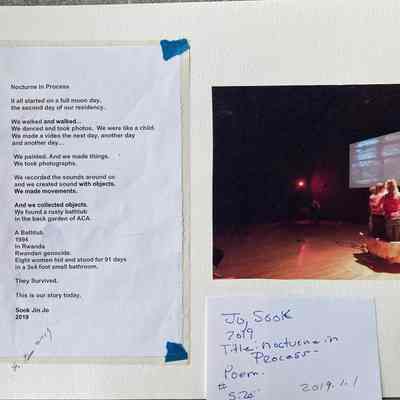 Nocturne in Process
It all started on a full moon day,
the second day of our residency.
We walked and walked...
We danced and took photos. We were like a child.
We made a video the next day, another day
and another day...
We painted. And we made things.
We took photographs.
We recorded the sounds around on
and we created sound with objects.
We made movements.
And we collected objects.
We found a rusty bathtub
in the back garden of ACA.
A Bathtub.
1994
In Rwanda
Rwandan genocide.
Eight women hid and stood for 91 days
in a 3x4 foot small bathroom.
They Survived.
This is our story today.
Sook Jin Jo
2019
Jo, Sook
2019
Title: Nocturne in
Process-
Poem.
#
2019.1.1